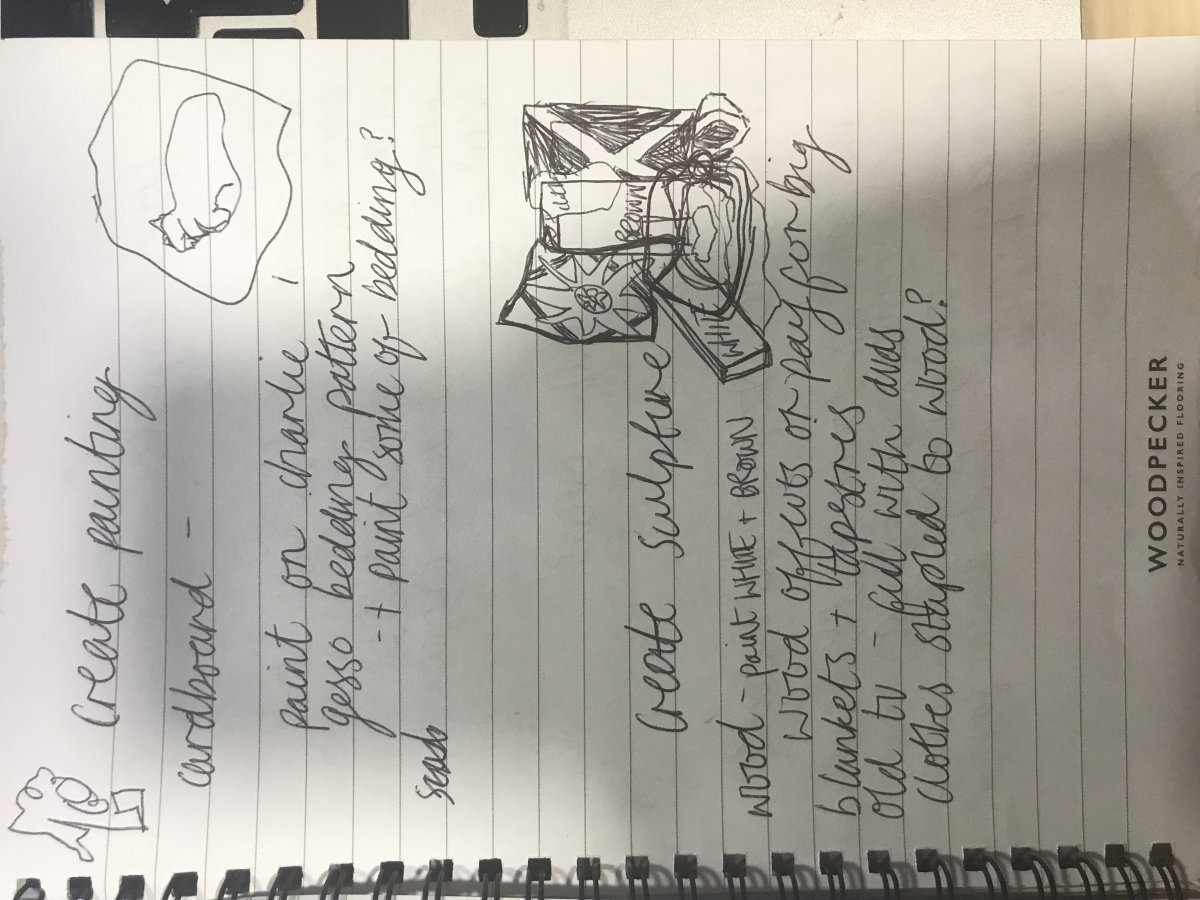 Create painting
cardboard -
paint on charlie
gesso bedding pattern
- + paint some of bedding?
Create sculpture
WOOD - paint WHITE + BROWN
wood offcuts or pay for big
blankets + tapestries
old tv - fill with duds
clothes stapled to wood?
BROWN
WHITE
WOODPECKER
NATURALLY INSPIRED FLOORING